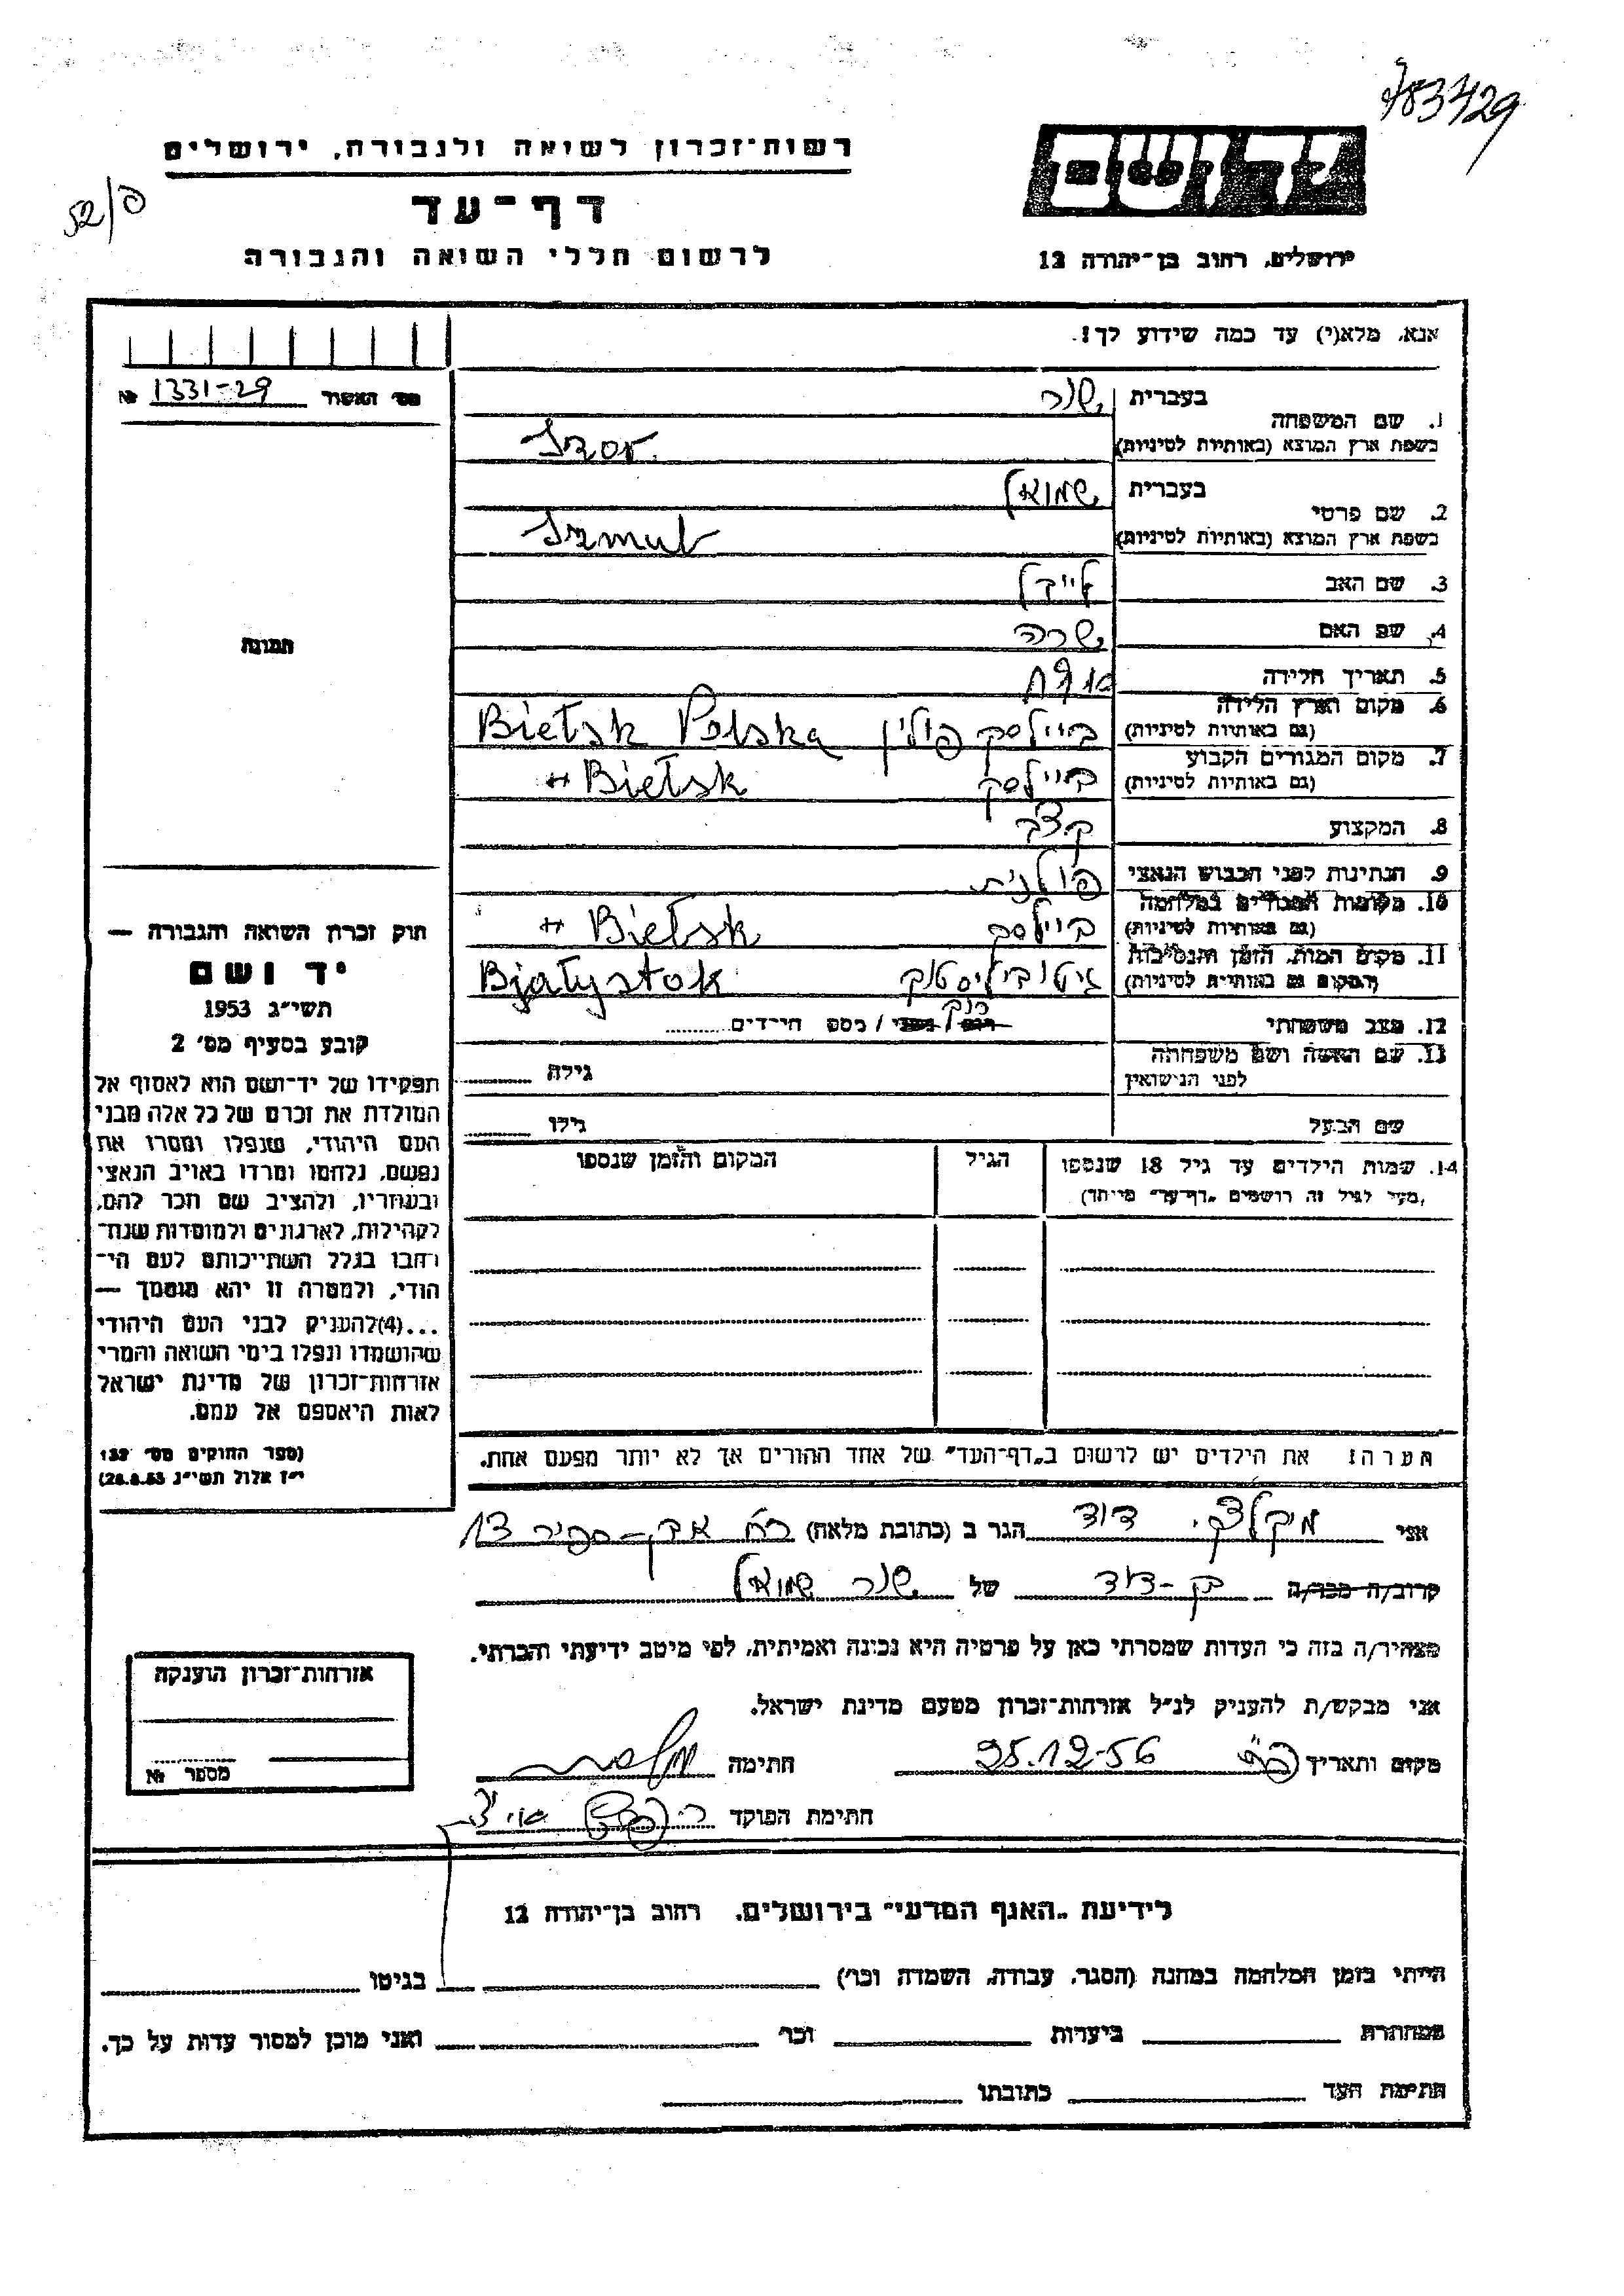 רשות־זכרון לשואה ולגבורה, ירושלים
52/פ
דף־עד
לרשום חללי השואה והגבורה
יד ושם
ירושלים, רחוב בן־יהודה 12
אנא, מלא(י) עד כמה שידוע לך!
מס׳ האשור 1331-29 №
תמונה
1. שם המשפחה
בעברית
בשפת ארץ המוצא (באותיות לטיניות)
2. שם פרטי
בעברית שמואל
בשפת ארץ המוצא (באותיות לטיניות) Szmul
3. שם האב
4. שם האם שרה
5. תאריך הלידה
6. מקום וארץ הלידה
(גם באותיות לטיניות) ביילסק פולין Bielsk Polska
7. מקום המגורים הקבוע
(גם באותיות לטיניות) ביילסק Bielsk
8. המקצוע קצב
9. הנתינות לפני הכבוש הנאצי פולנית
10. מקומות המגורים במלחמה
(גם באותיות לטיניות) ביילסק Bielsk
11. מקום המות, הזמן והנסיבות
(המקום גם באותיות לטיניות) גיטו ביליסטוק Bjałystok
12. מצב משפחתי רוק / מספר הילדים
13. שם האשה ושם משפחתה
לפני הנישואין גילה
שם הבעל גילו
14. שמות הילדים עד גיל 18 שנספו הגיל המקום והזמן שנספו
(מעל לגיל זה רושמים „דף־עד״ מיוחד)
הערה! את הילדים יש לרשום ב„דף־העד״ של אחד ההורים אך לא יותר מפעם אחת.
חוק זכרון השואה והגבורה —
יד ושם
תשי״ג 1953
קובע בסעיף מס׳ 2
תפקידו של יד־ושם הוא לאסוף אל
המולדת את זכרם של כל אלה מבני
העם היהודי, שנפלו ומסרו את
נפשם, נלחמו ומרדו באויב הנאצי
ובעוזריו, ולהציב שם וזכר להם,
לקהילות, לארגונים ולמוסדות שנח־
רחבו בגלל השתייכותם לעם הי־
הודי, ולמטרה זו יהא מוסמך —
...(4)להעניק לבני העם היהודי
שהושמדו ונפלו בימי השואה והמרי
אזרחות־זכרון של מדינת ישראל
לאות היאספם אל עמם.
(ספר החוקים מס׳ 132
י״ז אלול תשי״ג 28.8.53)
אני דוד הגר ב (כתובת מלאה) 13
קרוב/ה מכר/ה בן-דוד של שמואל
מצהיר/ה בזה כי העדות שמסרתי כאן על פרטיה היא נכונה ואמיתית, לפי מיטב ידיעתי והכרתי.
אני מבקש/ת להעניק לנ״ל אזרחות־זכרון מטעם מדינת ישראל.
מקום ותאריך 25.12-56 חתימה
חתימת הפוקד
אזרחות־זכרון הוענקה
מספר №
לידיעת „האגף המדעי״ בירושלים, רחוב בן־יהודה 12
הייתי בזמן המלחמה במחנה (הסגר, עבודה, השמדה וכו׳) בגיטו
במחתרת ביערות וכו׳ ואני מוכן למסור עדות על כך.
חתימת העד כתובתו